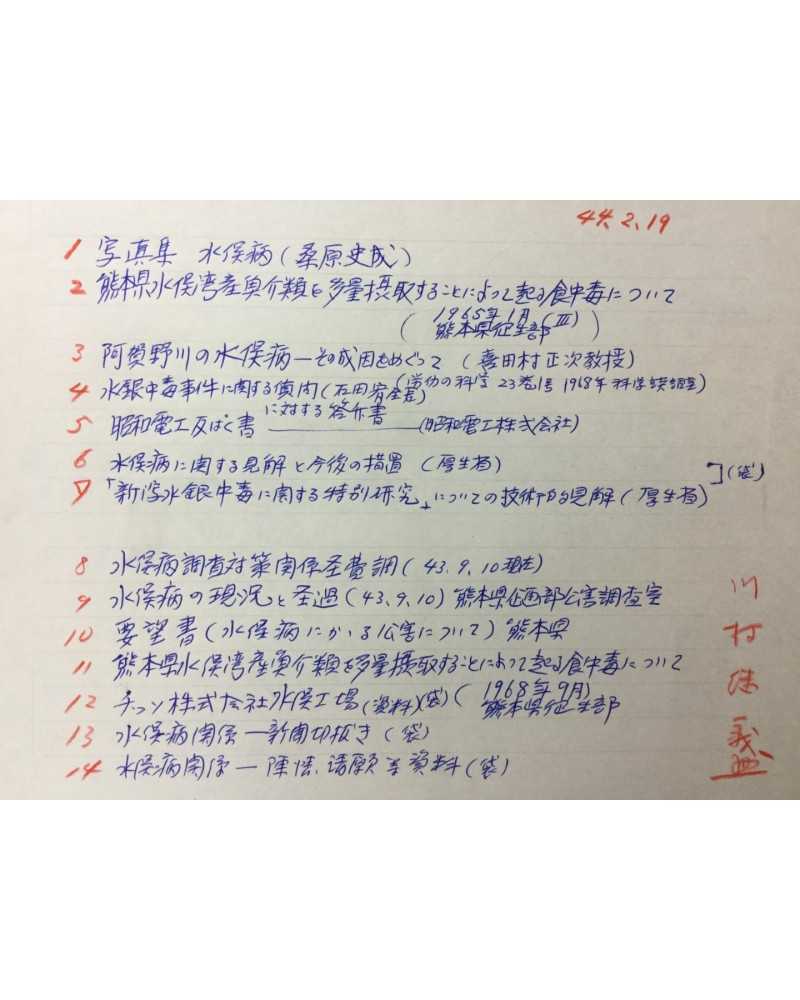 44.2.19
1 写真集 水俣病(桑原史成)
2 熊本県水俣湾産魚介類を多量摂取することによって起る食中毒について
(1965年1月(Ⅲ)
熊本県衛生部)
3 阿賀野川の水俣病―その成因をめぐって (喜田村正次教授)
4 水銀中毒事件に関する質問 (労働の科学 23巻1号 1968年
5 昭和電工反ばく書に対する答弁書 ――― (昭和電工株式会社)
6 水俣病に関する見解と今後の措置 (厚生省)
7 「新潟水銀中毒に関する特別研究」についての技術的な見解(厚生省) (袋)
8 水俣病調査対策関係経費調(43.9.10現在)
9 水俣病の現況と経過(43.9.10) 熊本県企画部公害調査室
10 要望書(水俣病にかゝる公害について) 熊本県
11 熊本県水俣湾産魚介類を多量摂取することによって起る食中毒について
(1968年9月)
熊本県衛生部
12 チッソ株式会社水俣工場(資料)(袋)
13 水俣病関係―新聞切抜き (袋)
14 水俣病関係―陳情、請願等資料(袋)
川村